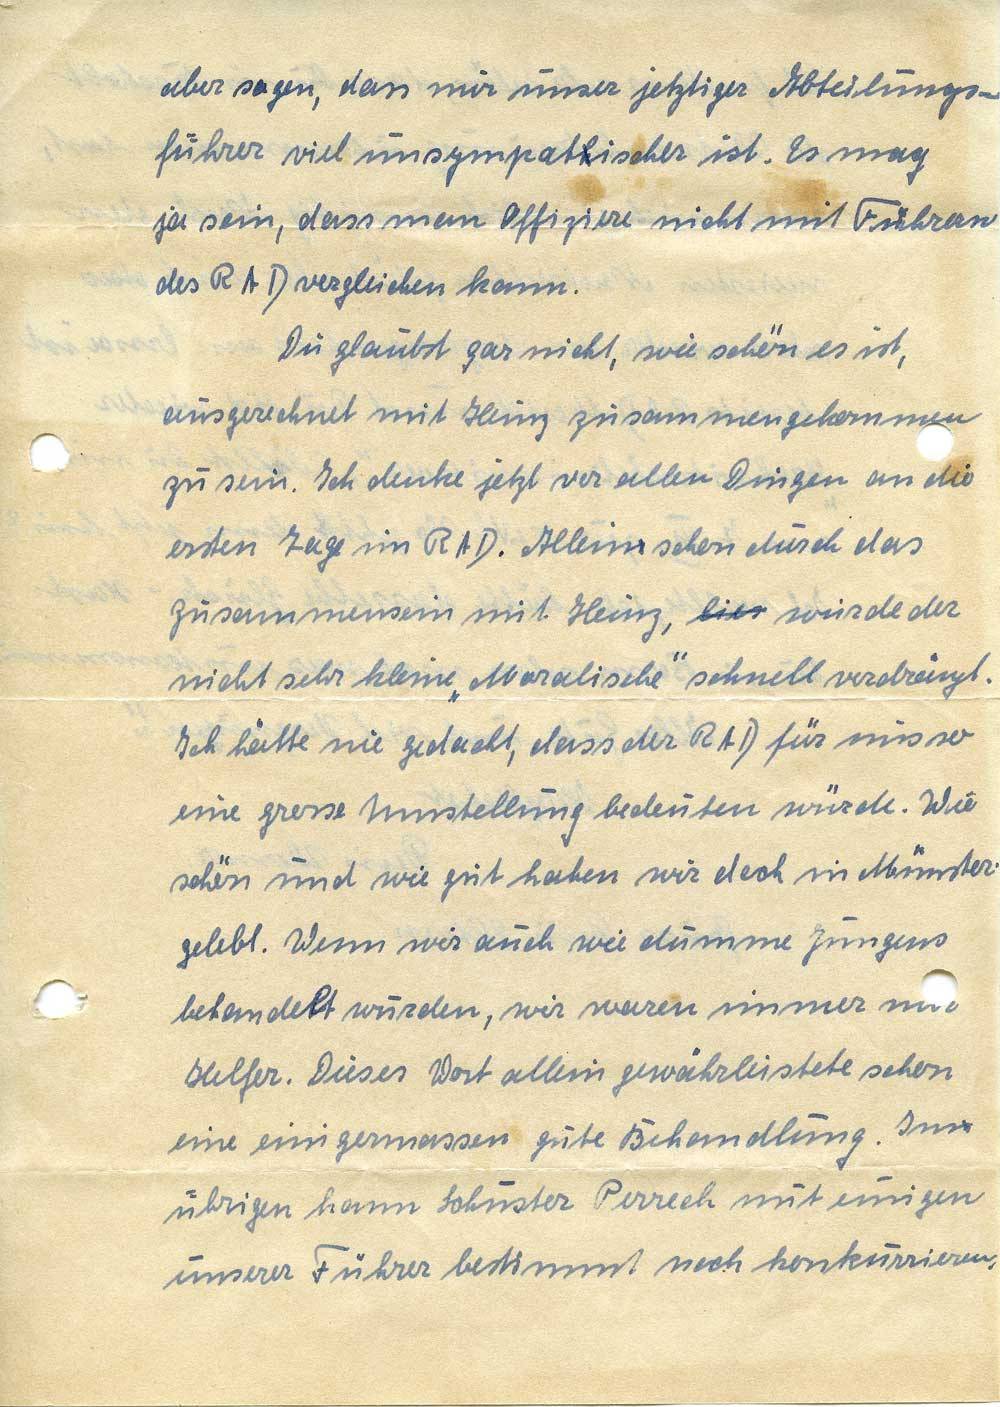 aber sagen, dass mir unser jetztiger Abteilungs-
führer viel unsympathischer ist. Es mag
ja sein, dass man Offiziere nicht mit Führern
des RAD vergleichen kann.
Du glaubst gar nicht, wie schön es ist,
ausgerechnet mit Heinz zusammengekommen
zu sein. Ich denke jetzt vor allen Dingen an die
ersten Tage im RAD. Allein schon durch das
Zusammensein mit Heinz, wurde der
nicht sehr kleine „Moralische" schnell verdrängt.
Ich hätte nie gedacht, dass der RAD für uns so
eine grosse Umstellung bedeuten würde. Wie
schön und wie gut haben wir doch in Münster
gelebt. Wenn wir auch wie dumme Jungens
behandelt wurden, wir waren immer nur
Helfer. Dieses Wort allein gewährleistete schon
eine einigermassen gute Behandlung. Im
übrigen kann Schuster mit einigen
unserer Führer bestimmt noch konkurrieren,